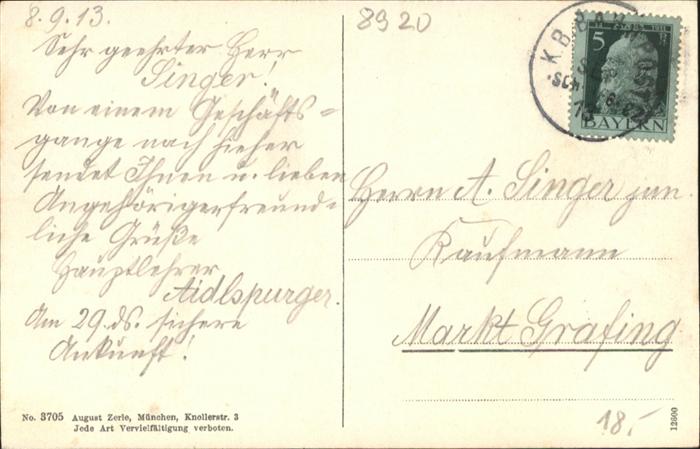 8.9.13.
Sehr geehrter Herr
Singer!
Von einem Geschäfts-
gange nach hieher
sendet Ihnen u. lieben
Angehörigen freund-
liche Grüße
Hauptlehrer
Aidlspurger.
Am 29. ds. sichere
Ankunft!
No. 3705 August Zerle, München, Knollerstr. 3
Jede Art Vervielfältigung verboten.
8920
K.B. BAHNPOST
5
BAYERN
Herrn A. Singer jun
Kaufmann
Markt Grafing
12600
18.-